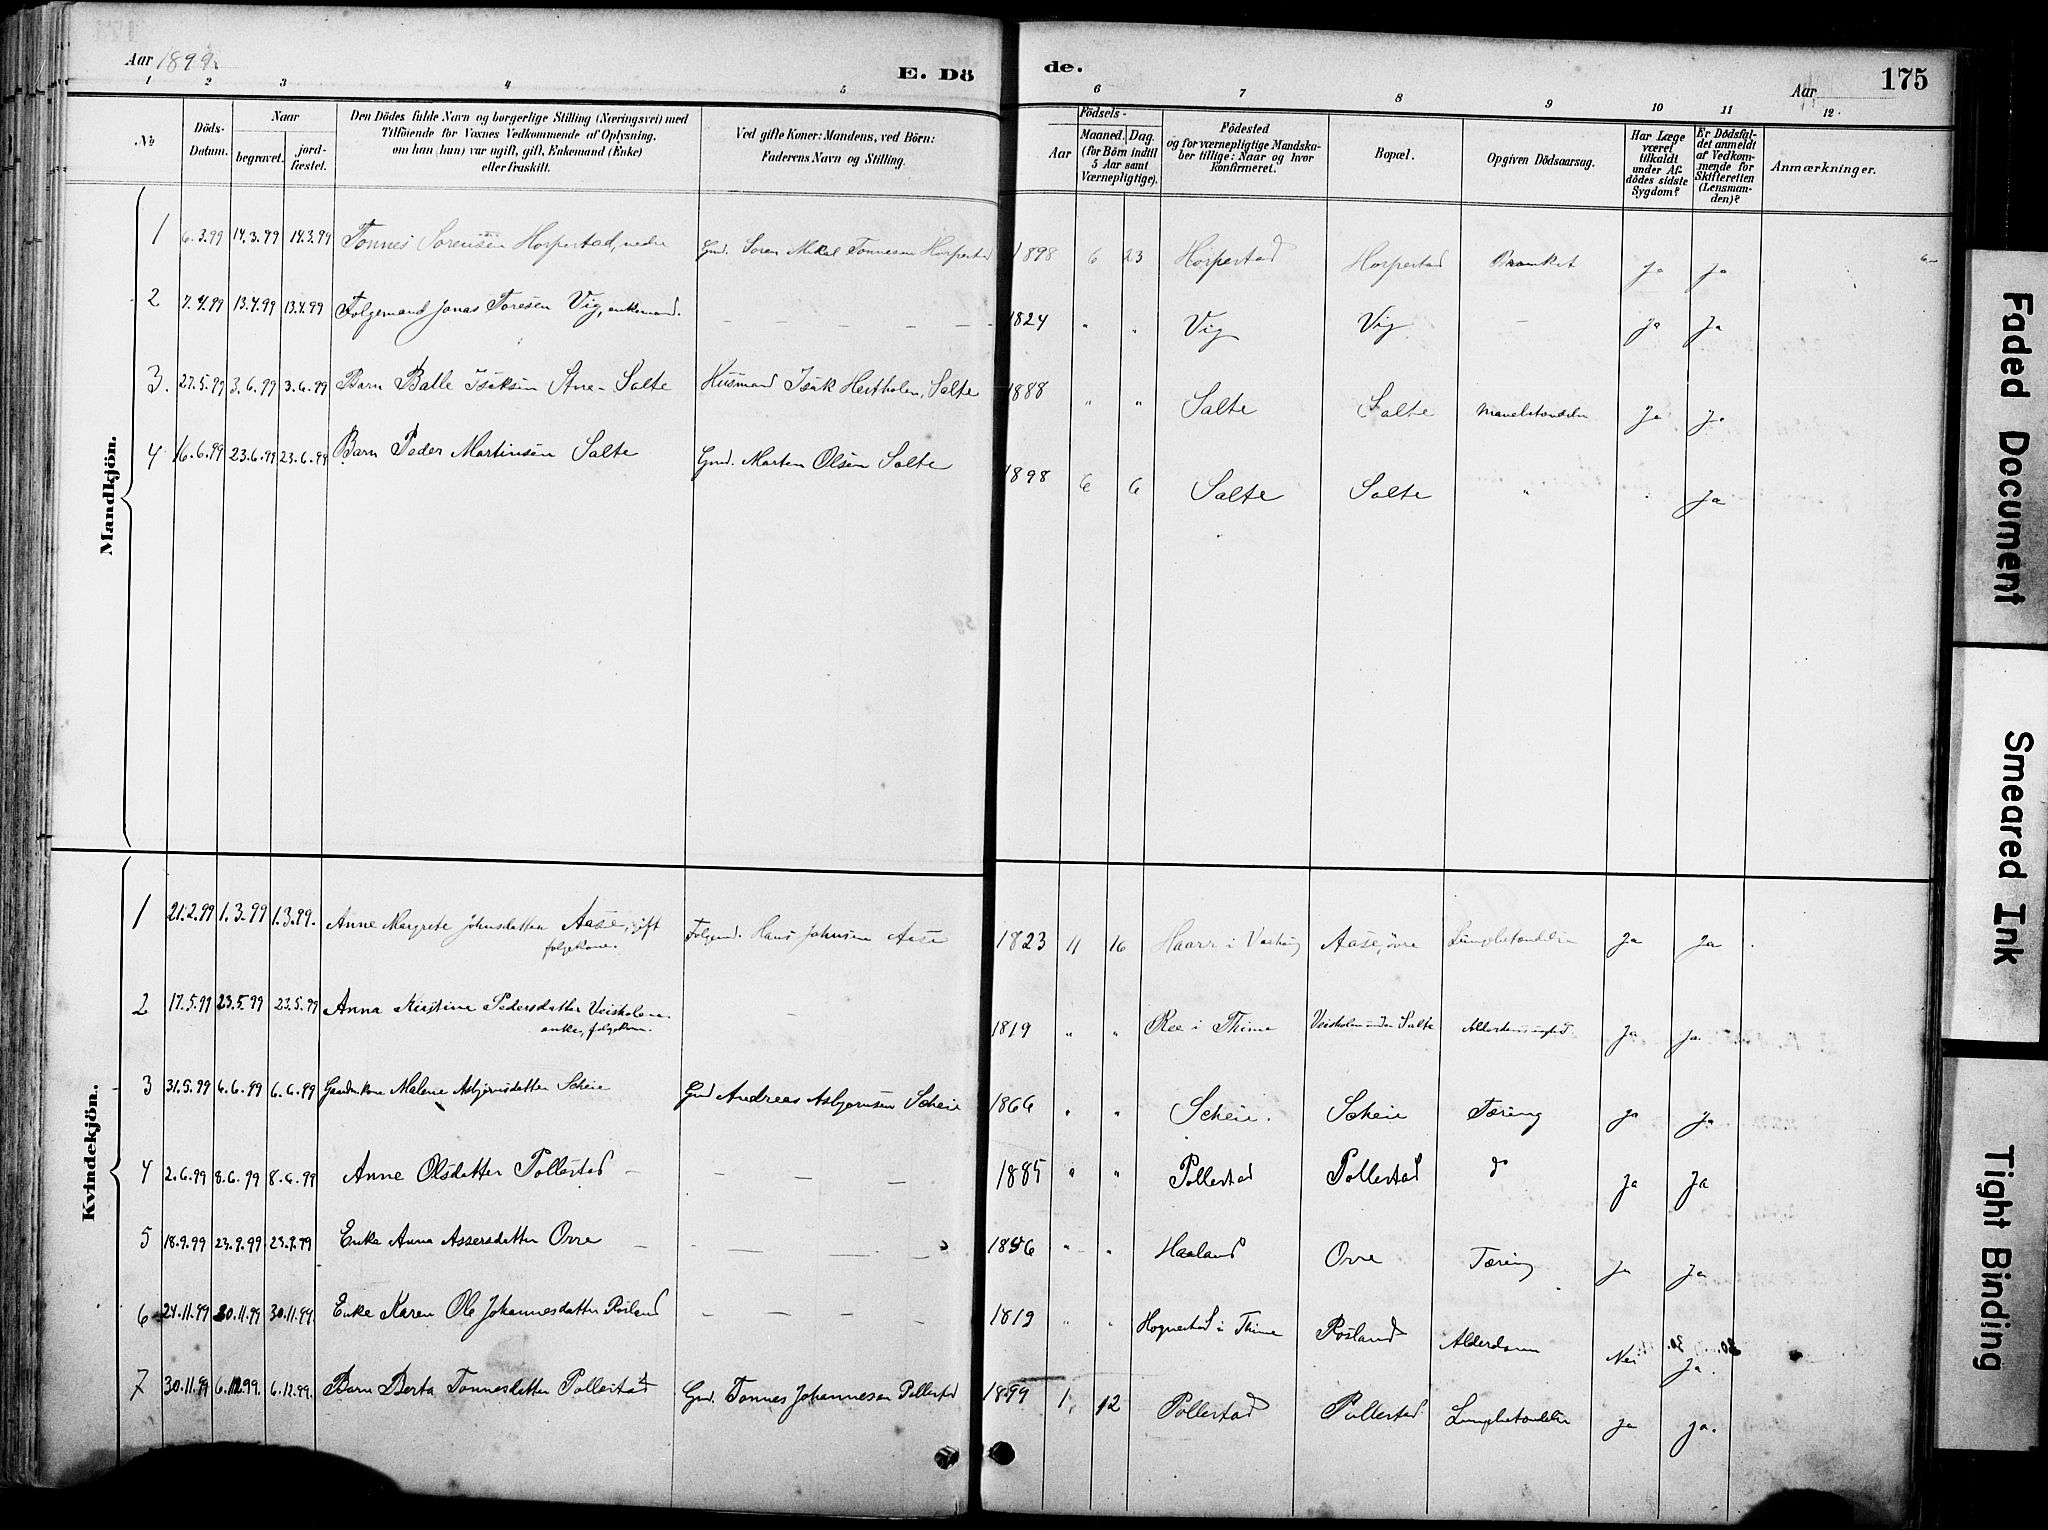 Aar 1899.
E. Dö
de.
Aar
175
1 2 3 4 5 6 7 8 9 10 11 12.
No
Döds-Datum.
Naar
begravet.
jord-fæstet.
Den Dödes fulde Navn og borgerlige Stilling (Næringsvei) med
Tilföiende for Voxnes Vedkommende af Oplysning,
om han (hun) var ugift, gift, Enkemand (Enke)
eller fraskilt.
Ved gifte Koner: Mandens, ved Börn:
Faderens Navn og Stilling.
Födsels-
Aar
Maaned. Dag.
(for Börn indtil
5 Aar samt
Værnepligtige).
Födested
og for værnepligtige Mandska-
ber tillige: Naar og hvor
konfirmeret.
Bopæl.
Opgiven Dödsaarsag.
Har Læge
været
tilkaldt
under Af-
dödes sidste
Sygdom?
Er Dödsfal-
det anmeldt
af Vedkom-
mende for
Skifteretten
(Lensman-
den)?
Anmærkninger.
Mandkjön.
1 6.3.99 14.3.99 14.3.99 Tonnes Sorensen Horpestad, nedre Gmd. Soren Mikal Tonnesen Horpestad 1898 6 23 Horpestad Horpestad Ja Ja
2 7.4.99 13.4.99 13.4.99 Folgemand Jonas Toresen Vig, enkemand. — — — — — 1824 " " Vig Vig. — Ja Ja
3. 27.5.99 3.6.99 3.6.99 Barn Balle Isaksen Salte Husmand Isak Salte 1888 " " Salte Salte Ja Ja
4 16.6.99 23.6.99 23.6.99 Barn Peder Martinsen Salte Gmd. Marten Olsen Salte 1898 6 6 Salte Salte " Ja
Kvindekjön.
1 21.2.99 1.3.99 1.3.99. Anne Margrete Johnsdatter Aase, gift Folgmd. Hans Johnsen Aase 1823 11 16 Haarr i Varhaug Aase, övre Lungebetændelse Ja Ja
folgekone.
2 17.5.99 23.5.99 23.5.99 Anna Kristine Pedersdatter Veisholen — 1819 " " Ree i Thime Veisholen under Salte Ja Ja.
enke, folgekone.
3 31.5.99 6.6.99 6.6.99 Gaardmkone Malene Asbjornsdatter Scheie Gmd Andreas Asbjornsen Scheie 1866 " " Scheie. Scheie Tæring Ja Ja
4 2.6.99 8.6.99 8.6.99 Anne Olsdatter Pollestad — — — — 1885 " " Pollestad Pollestad do Ja Ja
5 18.9.99 23.9.99 23.9.99 Enke Anna Assersdatter Orre — — — — 1856 " " Haaland Orre Tæring Ja Ja
6 24.11.99 30.11.99 30.11.99. Enke Karen Ole Johannesdatter Rosland — — — 1819 " " Hognestad i Thime Rosland Alderdom Nei Ja.
7 30.11.99 6.12.99. 6.12.99. Barn Berta Tonnesdatter Pollestad Gmd. Tonnes Johannesen Pollestad 1899 1. 12 Pollestad Pollestad Lungebetændelse Ja Ja.
Faded Document
Smeared Ink
Tight Binding